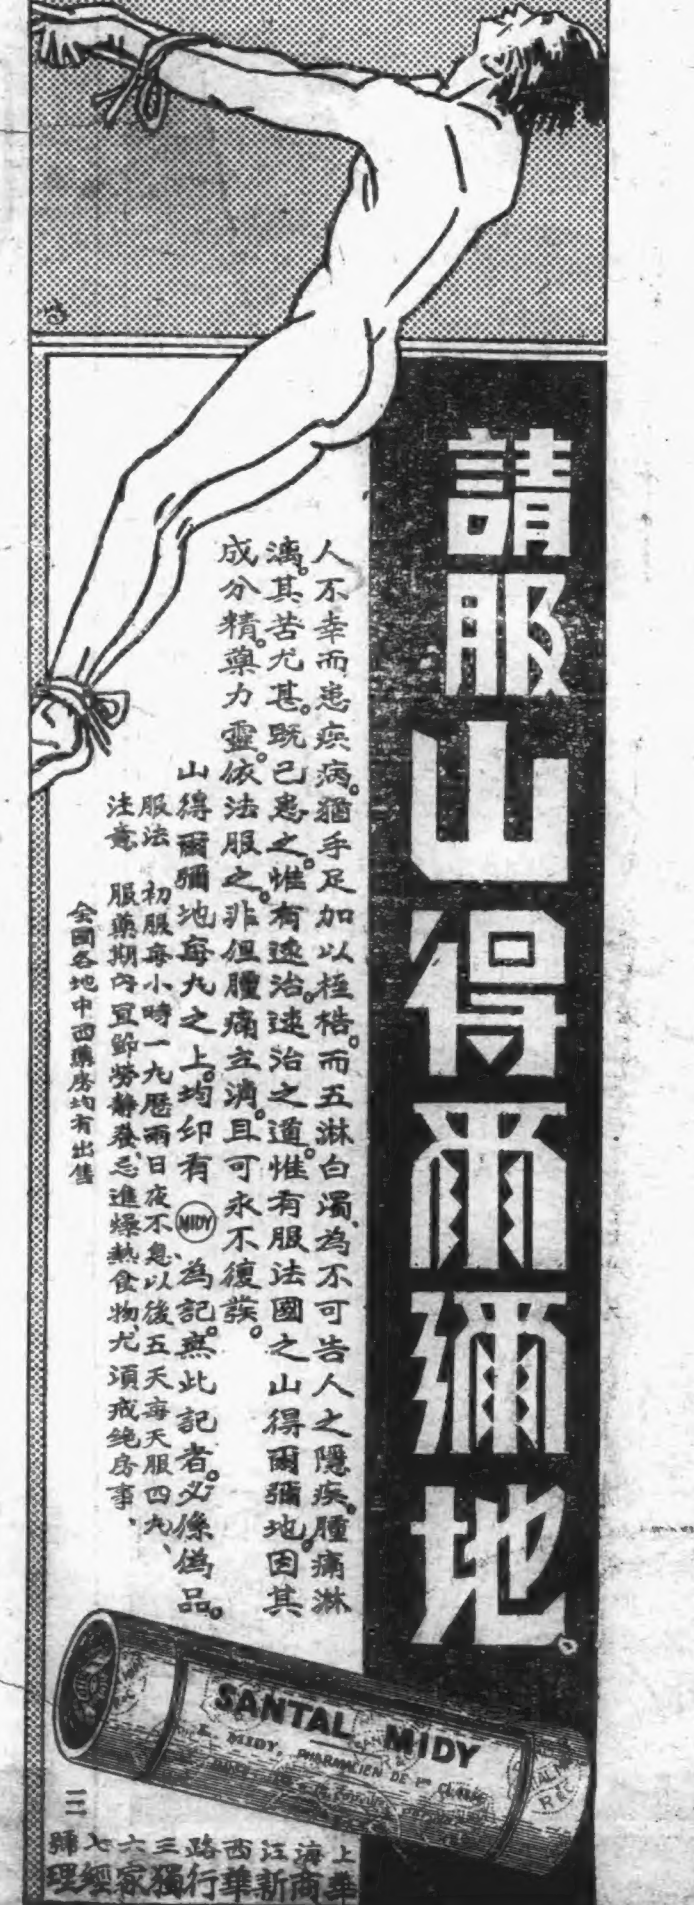 請服山得爾彌地。
人不幸而患疾病。猶手足加以桎梏。而五淋白濁、為不可告人之隱疾。腫痛淋
漓。其苦尤甚。既已患之。惟有速治。速治之道。惟有服法國之山得爾彌地。因其
成分精。藥力靈。依法服之。非但腫痛立消。且可永不復發。
山得爾彌地每丸之上。均印有 MIDY 為記。無此記者。必係偽品。
服法 初服每小時一丸歷兩日夜不息以後五天每天服四丸、
注意 服藥期內宜節勞靜養、忌進燥熱食物、尤須戒絕房事、
全國各地中西藥房均有出售
SANTAL MIDY
L. MIDY, PHARMACIEN DE 1re CLASSE
上海江西路三六七號
華商新華行獨家經理
三